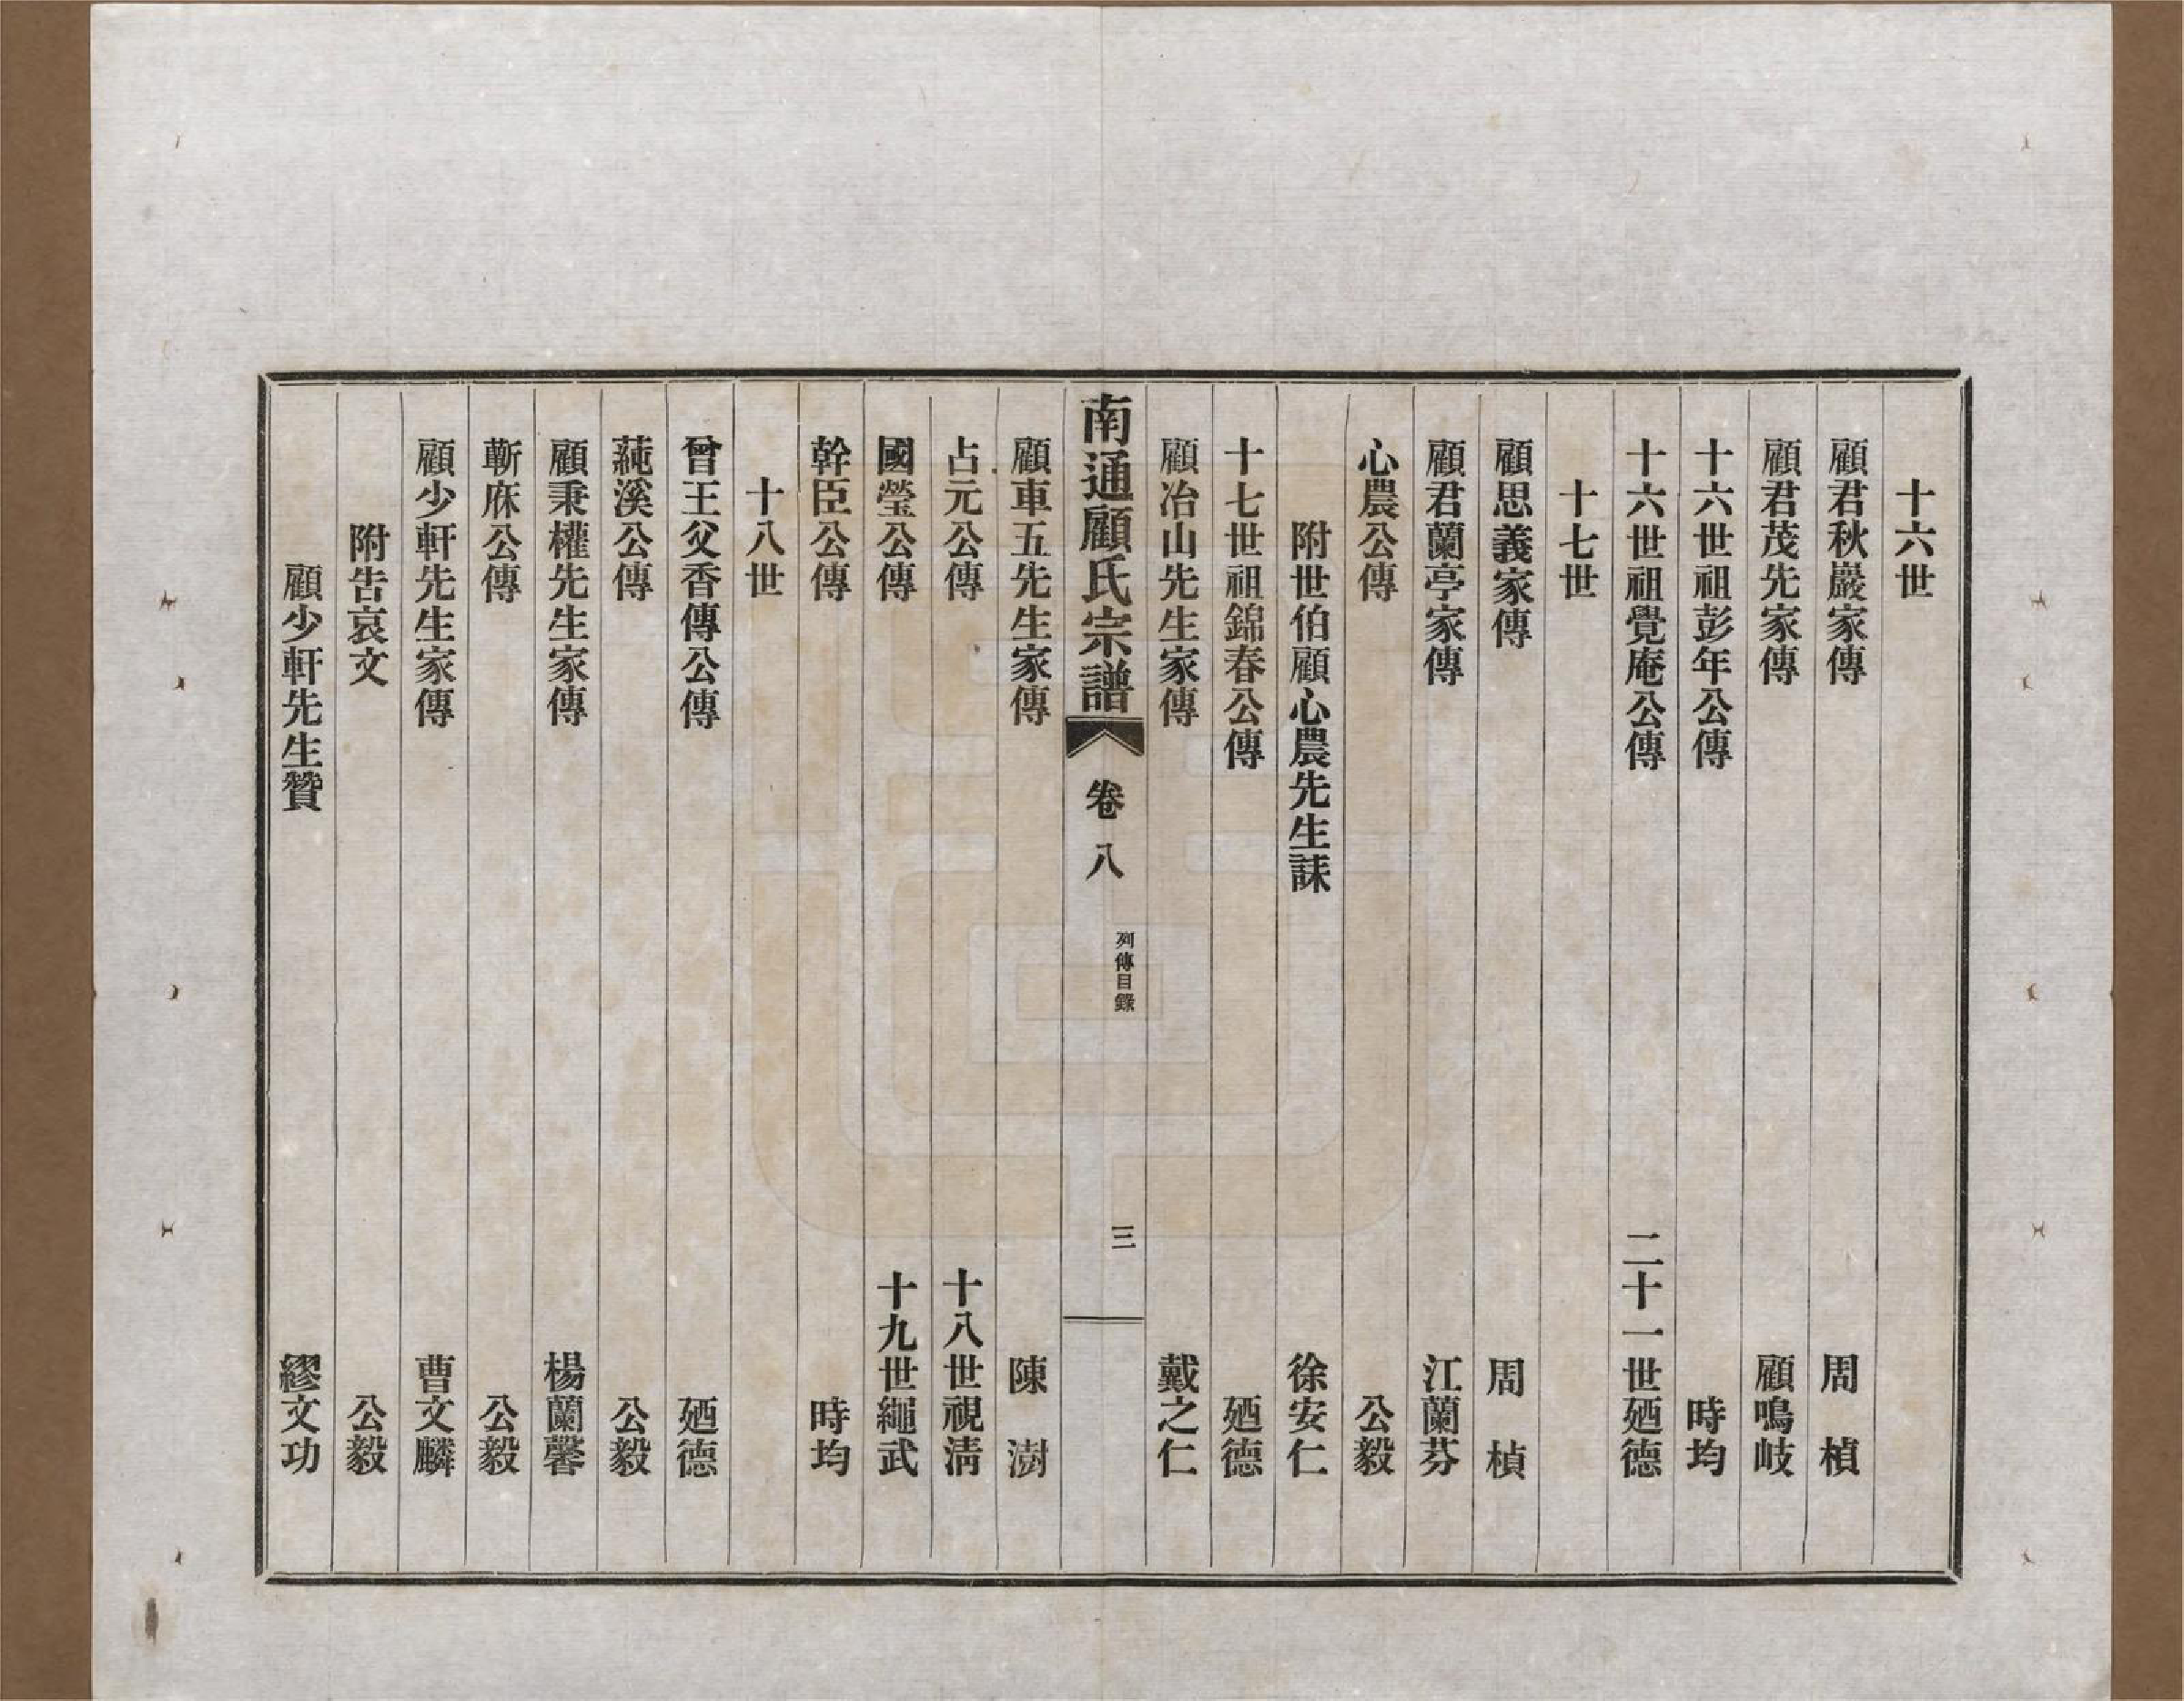 十六世
顧君秋巖家傳 周楨
顧君茂先家傳 顧鳴岐
十六世祖彭年公傳 時均
十六世祖覺庵公傳 二十一世廼德
十七世
顧思義家傳 周楨
顧君蘭亭家傳 江蘭芬
心農公傳 公毅
附世伯顧心農先生誄 徐安仁
十七世祖錦春公傳 廼德
顧冶山先生家傳 戴之仁
南通顧氏宗譜 卷八 列傳目錄 三
顧車五先生家傳 陳澍
占元公傳 十八世視淸
國瑩公傳 十九世繩武
幹臣公傳 時均
十八世
曾王父香傳公傳 廼德
蒓溪公傳 公毅
顧秉權先生家傳 楊蘭馨
蘄庥公傳 公毅
顧少軒先生家傳 曹文麟
附告哀文 公毅
顧少軒先生贊 繆文功